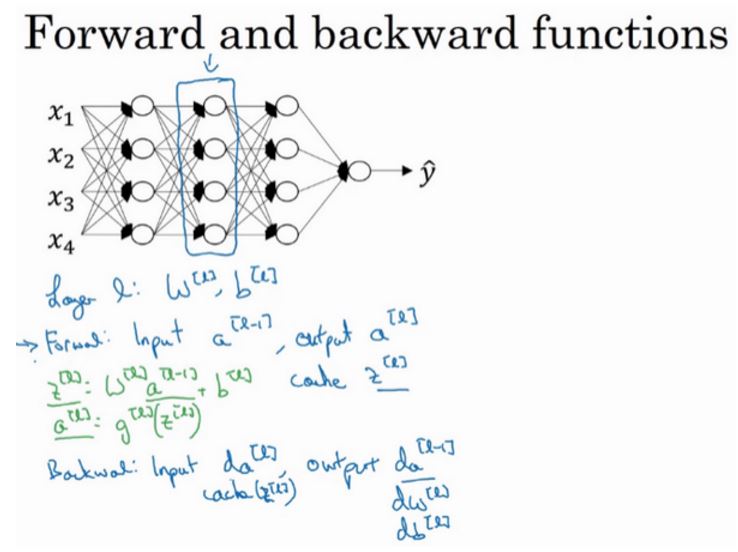 Forward and backward functions
x₁
x₂
x₃
x₄
ŷ
Layer l: W^[l], b^[l]
→ Forward: Input a^[l-1], output a^[l]
cache z^[l]
z^[l]: W^[l] a^[l-1] + b^[l]
a^[l]: g^[l](z^[l])
Backward: Input da^[l], output da^[l-1]
cache(z^[l])
dW^[l]
db^[l]